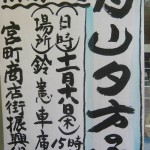 山夕方
日時十一月十八日(木)
15時
場所鈴憲車庫
宮町商店街振興